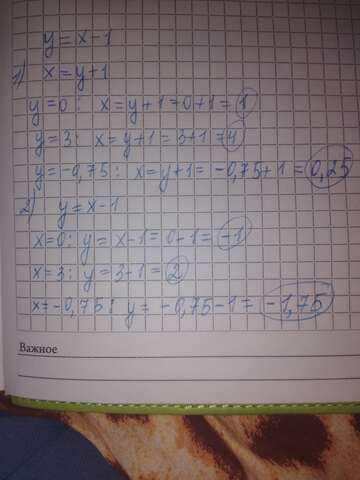 y=x-1
1) x=y+1
y=0: x=y+1=0+1=1
y=3: x=y+1=3+1=4
y=-0,75: x=y+1=-0,75+1=0,25
2) y=x-1
x=0: y=x-1=0-1=-1
x=3: y=3-1=2
x=-0,75: y=-0,75-1=-1,75
Важное